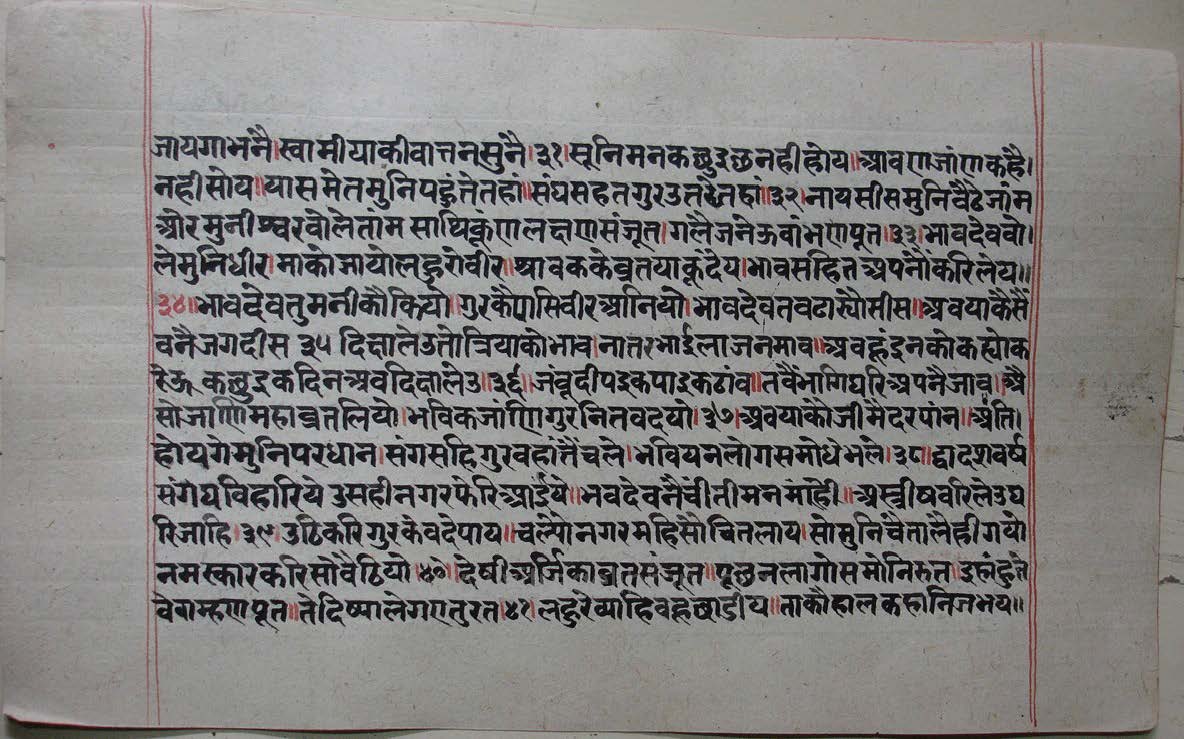 जायगाभनै।स्वामीयाकीवात्तनसुनै।३१।सूनिमनकछुइछनहीहोय॥आवणजांणकहै।
नहीसोय॥यासमेतमुनिपहुंतेतहां॥संघसहतगुरउतरेतहां॥३२।नायसीसमुनिवैठेजांम
औरमुनीश्वरवोलेतांम साथिकूंणलक्षणसंजूत।गलैजनेऊवांभणपूत।३३।भावदेववो।
लेमुनिधीर।माकोजायोलहुरोवीर॥श्रावककेव्रतयाकूंदेय।भावसहितअपनौंकरिलेय॥
३४॥भावदेवतुमनीकौकियो॥गुरकैपासिवीरआनियो।भावदेवतवढास्यौसीस॥अवयाकैसै
वनैजगदीस ३५ दिक्षालेउतोत्रियाकोभाव।नातरभाईलाजनमाव॥अवहूंइनकोकह्योक
रेऊ कछुइकदिनअवदिक्षालेउ॥३६।जंवूदीपइकपाइकठांव॥तवैंभागिघरिअपनैजाव।अै
सोजाणिमहाव्रतलियो।भविकजांणिगुरनितवदयो।३७।अवयाकौजीमैदरपांन॥अंति।
होयगेमुनिपरधान।संगसहिगुरवहांतैंचले।भवियनलोगसमोधेभले।३८।द्वादशवर्ष
संगेयविहारिये उसहीनगरफेरिआईये॥भवदेवनैचींतीमनमांही॥अस्त्रीषवरिलेउघ
रिजाहि।३९।उठिकरिगुरकेवदेपाय॥चल्योनगरमहिसौचितलाय।सोमुनिचैतालैहीगयो
नमस्कारकरिसोवैठियो।४०।देषीअर्जिकाव्रतसंजूत॥पूछनलागोसमोनिरुत।इहांहुंते
वेवाम्हणपूत॥तेदिष्यालेगएतुरत।४१।लहुरेव्याहिवहूछाडीय॥ताकौहालकहोनिजभय॥